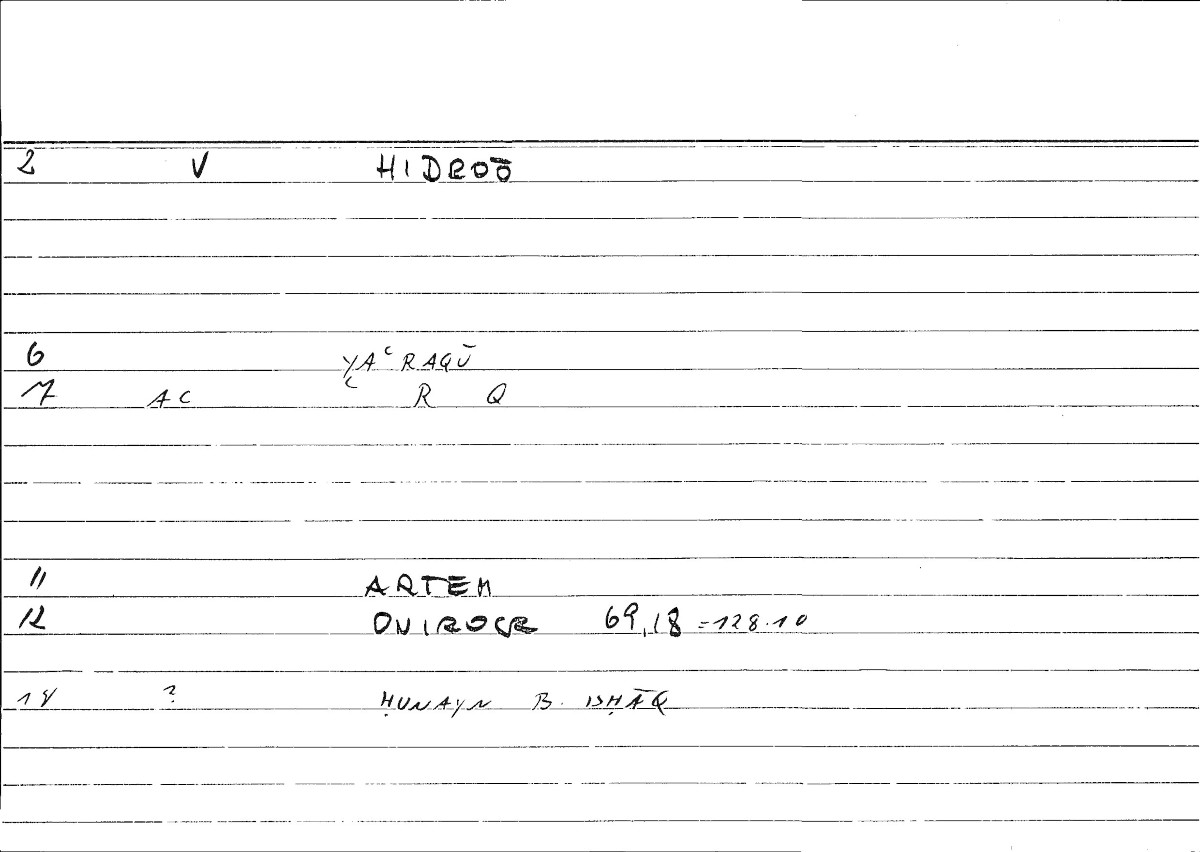 2 V HIDROŌ
6 YAᶜRAQU
7 AC ᶜ R Q
11 ARTEM
12 ONIROCR 69,18 =128.10
14 ? ḤUNAYN B. ISḤĀQ